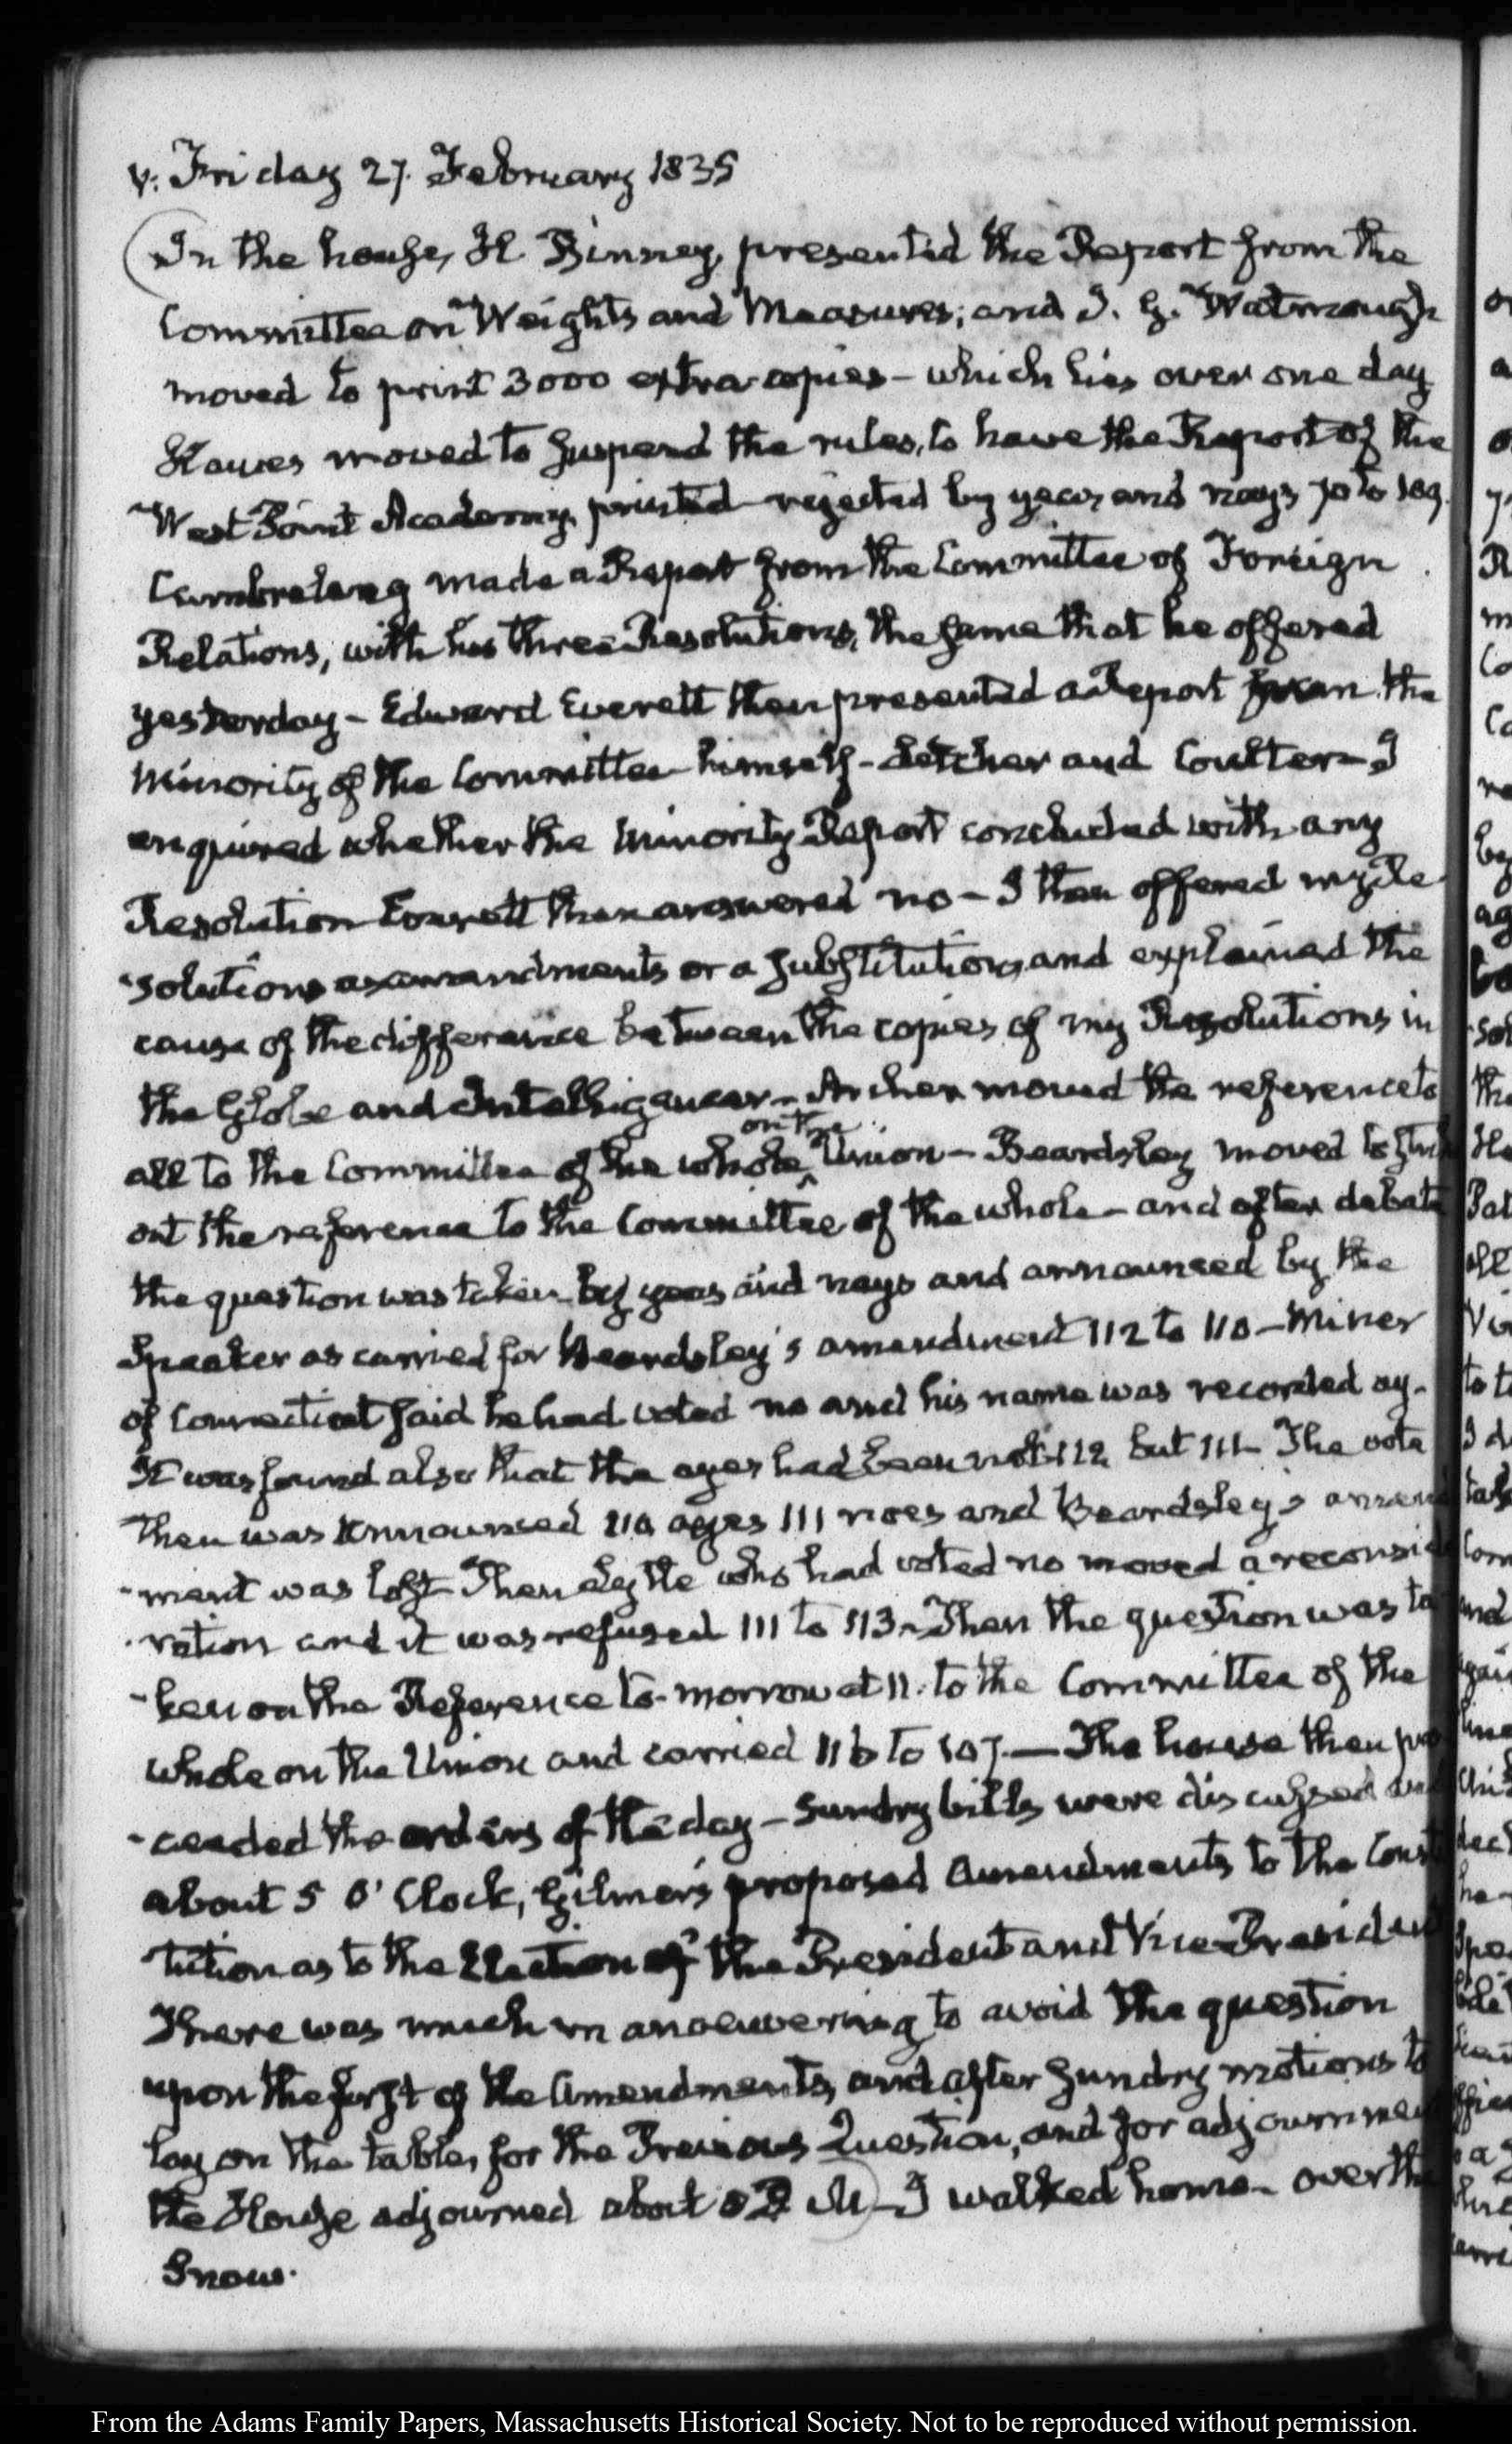 V. Friday 27. February 1835
In the house, H. Binney, presented the Report from the
Committee on Weights and Measures; and J. G. Watmough
moved to print 3000 extra copies – which lies over one day
Hawes moved to suspend the rules, to have the Report of the
West Point Academy, printed – rejected by yeas and nays 70 to 109.
Cambreleng made a Report from the Committee of Foreign
Relations, with his three Resolutions, the same that he offered
yesterday – Edward Everett then presented a Report from the
minority of the Committee – himself – Letcher and Coulter – I
enquired whether the Minority Report concluded with any
Resolution Everett then answered no – I then offered my Re
-solutions as amendments or a substitution, and explained the
cause of the difference between the copies of my Resolutions in
the Globe and Intelligencer – Archer moved the reference to
all to the Committee of the whole on the Union – Beardsley moved to
out the reference to the Committee of the whole – and after debate
the question was taken by yeas and nays and announced by the
Speaker as carried for Beardsley's amendment 112 to 110 – Miner
of Connecticut said he had voted no and his name was recorded ay.
It was found also that the ayes had been not 112 but 111 – The vote
then was announced 110 ayes 111 noes and Beardsley's amend
-ment was lost – Then who had voted no moved a reconside
-ration and it was refused 111 to 113 – Then the question was ta
-ken on the Reference to-morrow at 11. to the Committee of the
whole on the Union and carried to 107. — The house then pro
-ceeded the orders of the day – Sundry bills were discussed and
about 5 O'Clock, Gilmer's proposed Amendments to the Consti
tution as to the Election of the President and Vice-President
There was much manoeuvering to avoid the question
upon the first of the Amendments, and after sundry motions to
lay on the table, for the Previous Question, and for adjournment
the House adjourned about P M – I walked home – over the
Snow.
From the Adams Family Papers, Massachusetts Historical Society. Not to be reproduced without permission.